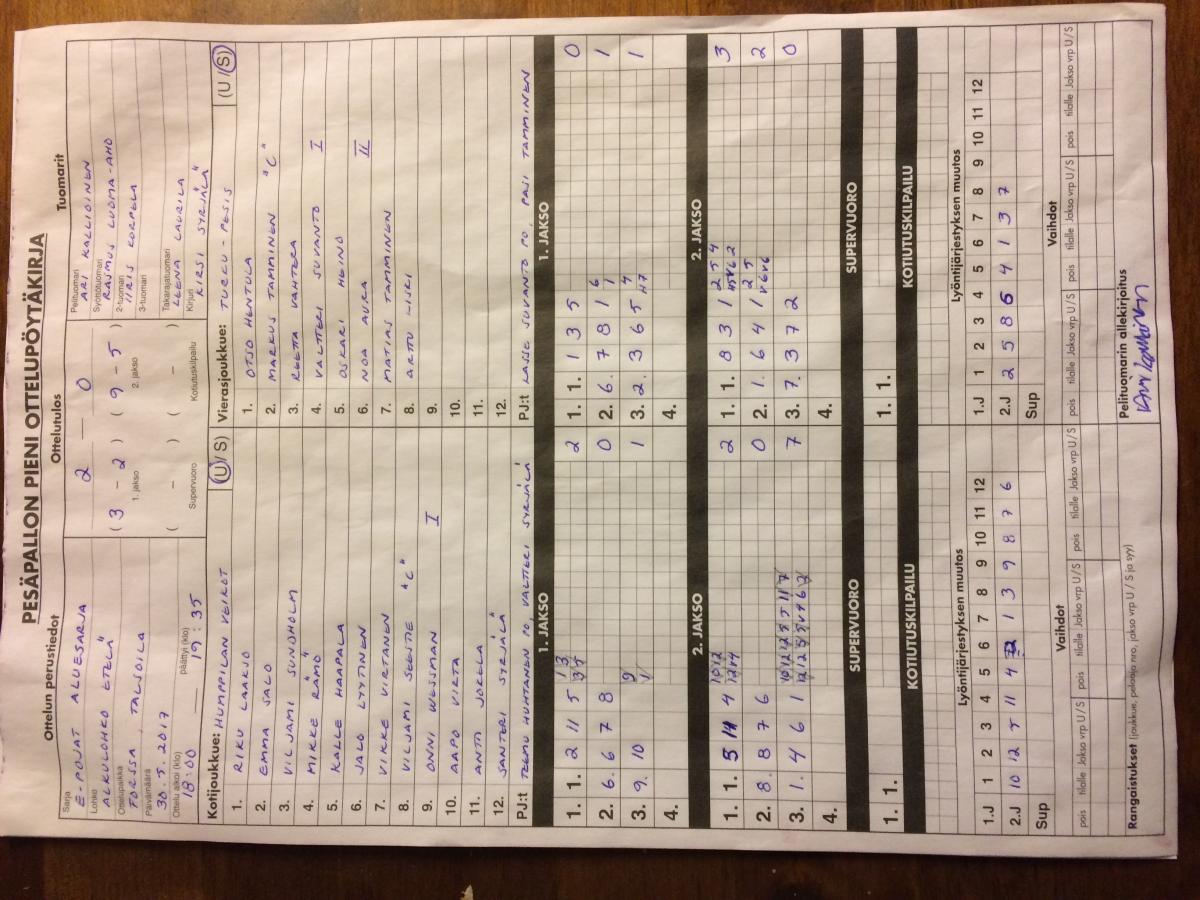 PESÄPALLON PIENI OTTELUPÖYTÄKIRJA
Ottelun perustiedot
Sarja
E-POJAT ALUESARJA
Lohko
ALKULOHKO ETELÄ
Ottelupaikka
FORSSA, TALSOILA
Päivämäärä
30.5.2017
Ottelu alkoi (klo)
18:00
päättyi (klo)
19:35
Ottelutulos
2 — 0
( 3 - 2 ) ( 9 - 5 )
1. jakso 2. jakso
( - ) ( - )
Supervuoro Kotiutuskilpailu
Tuomarit
Pelituomari
ARI KALLIOINEN
Syöttötuomari
RASMUS LUOMA-AHO
2-tuomari
IIRIS KORPELA
3-tuomari
Takarajatuomari
LEENA LAURILA
Kirjuri
KIRSI SYRJÄLÄ
Kotijoukkue: HUMPPILAN VEIKOT (U/S)
1. RIKU LAAKSO
2. EMMA SALO
3. VILJAMI SUNDHOLM
4. MIKKE RÄMÖ
5. KALLE HAAPALA
6. JALO LYTINEN
7. VIKKE VIRTANEN
8. VILJAMI SEESTE "C"
9. ONNI WESSMAN I
10. AAPO VIRTA
11. ANTTI JOKELA
12. SANTERI SYRJÄLÄ
PJ:t TEEMU HUHTANEN PO, VALTTERI SYRJÄLÄ
1. JAKSO
1. 1. 2 11 5 2
2. 6. 6 7 8 0
3. 9. 10 1
4.
2. JAKSO
1. 1. 5 11 4 2
2. 8. 8 7 6 0
3. 1. 4 6 1 7
4.
SUPERVUORO
1. 1.
KOTIUTUSKILPAILU
Lyöntijärjestyksen muutos
1 2 3 4 5 6 7 8 9 10 11 12
1.J
2.J 10 12 5 11 4 2 1 3 9 8 7 6
Sup
Vaihdot
pois tilalle Jakso vrp U/S pois tilalle Jakso vrp U/S pois tilalle Jakso vrp U/S
Rangaistukset (joukkue, pelaaja nro, jakso vrp U / S ja syy)
Vierasjoukkue: TURKU-PESIS (U/S)
1. OTSO HENTULA
2. MARKUS TAMMINEN "C"
3. REETTA VAHTERA
4. VALTTERI SUVANTO I
5. OSKARI HEINO
6. NOA AURA II
7. MATIAS TAMMINEN
8. ARTTU LISRI
9.
10.
11.
12.
PJ:t LASSE SUVANTO PO, PASI TAMMINEN
1. JAKSO
1. 1. 1 3 5 0
2. 6. 7 8 1 1
3. 2. 3 6 5 1
4.
2. JAKSO
1. 1. 8 3 1 3
2. 1. 6 4 1 2
3. 7. 3 7 2 0
4.
SUPERVUORO
1. 1.
KOTIUTUSKILPAILU
Lyöntijärjestyksen muutos
1 2 3 4 5 6 7 8 9 10 11 12
1.J
2.J 2 5 8 6 4 1 3 7
Sup
Vaihdot
pois tilalle Jakso vrp U/S pois tilalle Jakso vrp U/S pois tilalle Jakso vrp U/S
Pelituomarin allekirjoitus